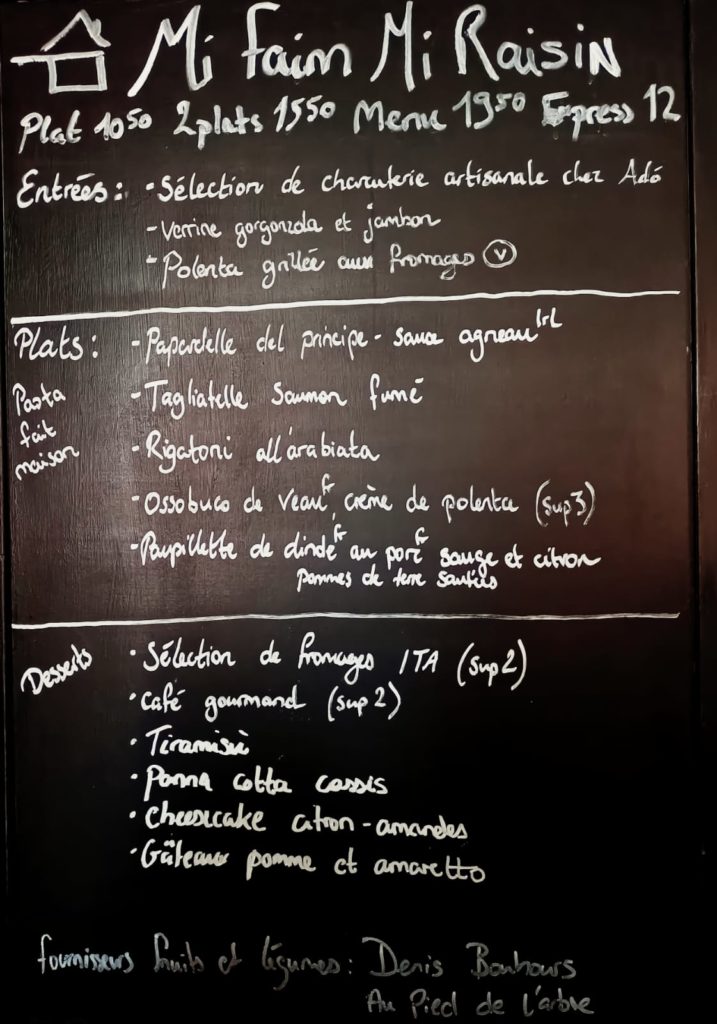 Mi Faim Mi Raisin
Plat 10⁵⁰ 2plats 15⁵⁰ Menu 19⁵⁰ Express 12
Entrées : - Sélection de charcuterie artisanale chez Adó
- Verrine gorgonzola et jambon
- Polenta grillée aux fromages V
Plats : - Papardelle del principe - sauce agneau Irl
Pasta fait maison
- Tagliatelle saumon fumé
- Rigatoni all'arabiata
- Ossobuco de veau fr, crème de polenta (sup 3)
- Paupillette de dinde fr au porc fr sauge et citron
pommes de terre sautées
Desserts
· Sélection de fromages ITA (sup 2)
· Café gourmand (sup 2)
· Tiramisù
· Panna cotta cassis
· Cheesecake citron - amandes
· Gâteau pomme et amaretto
fournisseurs fruits et légumes : Denis Bonhours
Au Pied de l'arbre